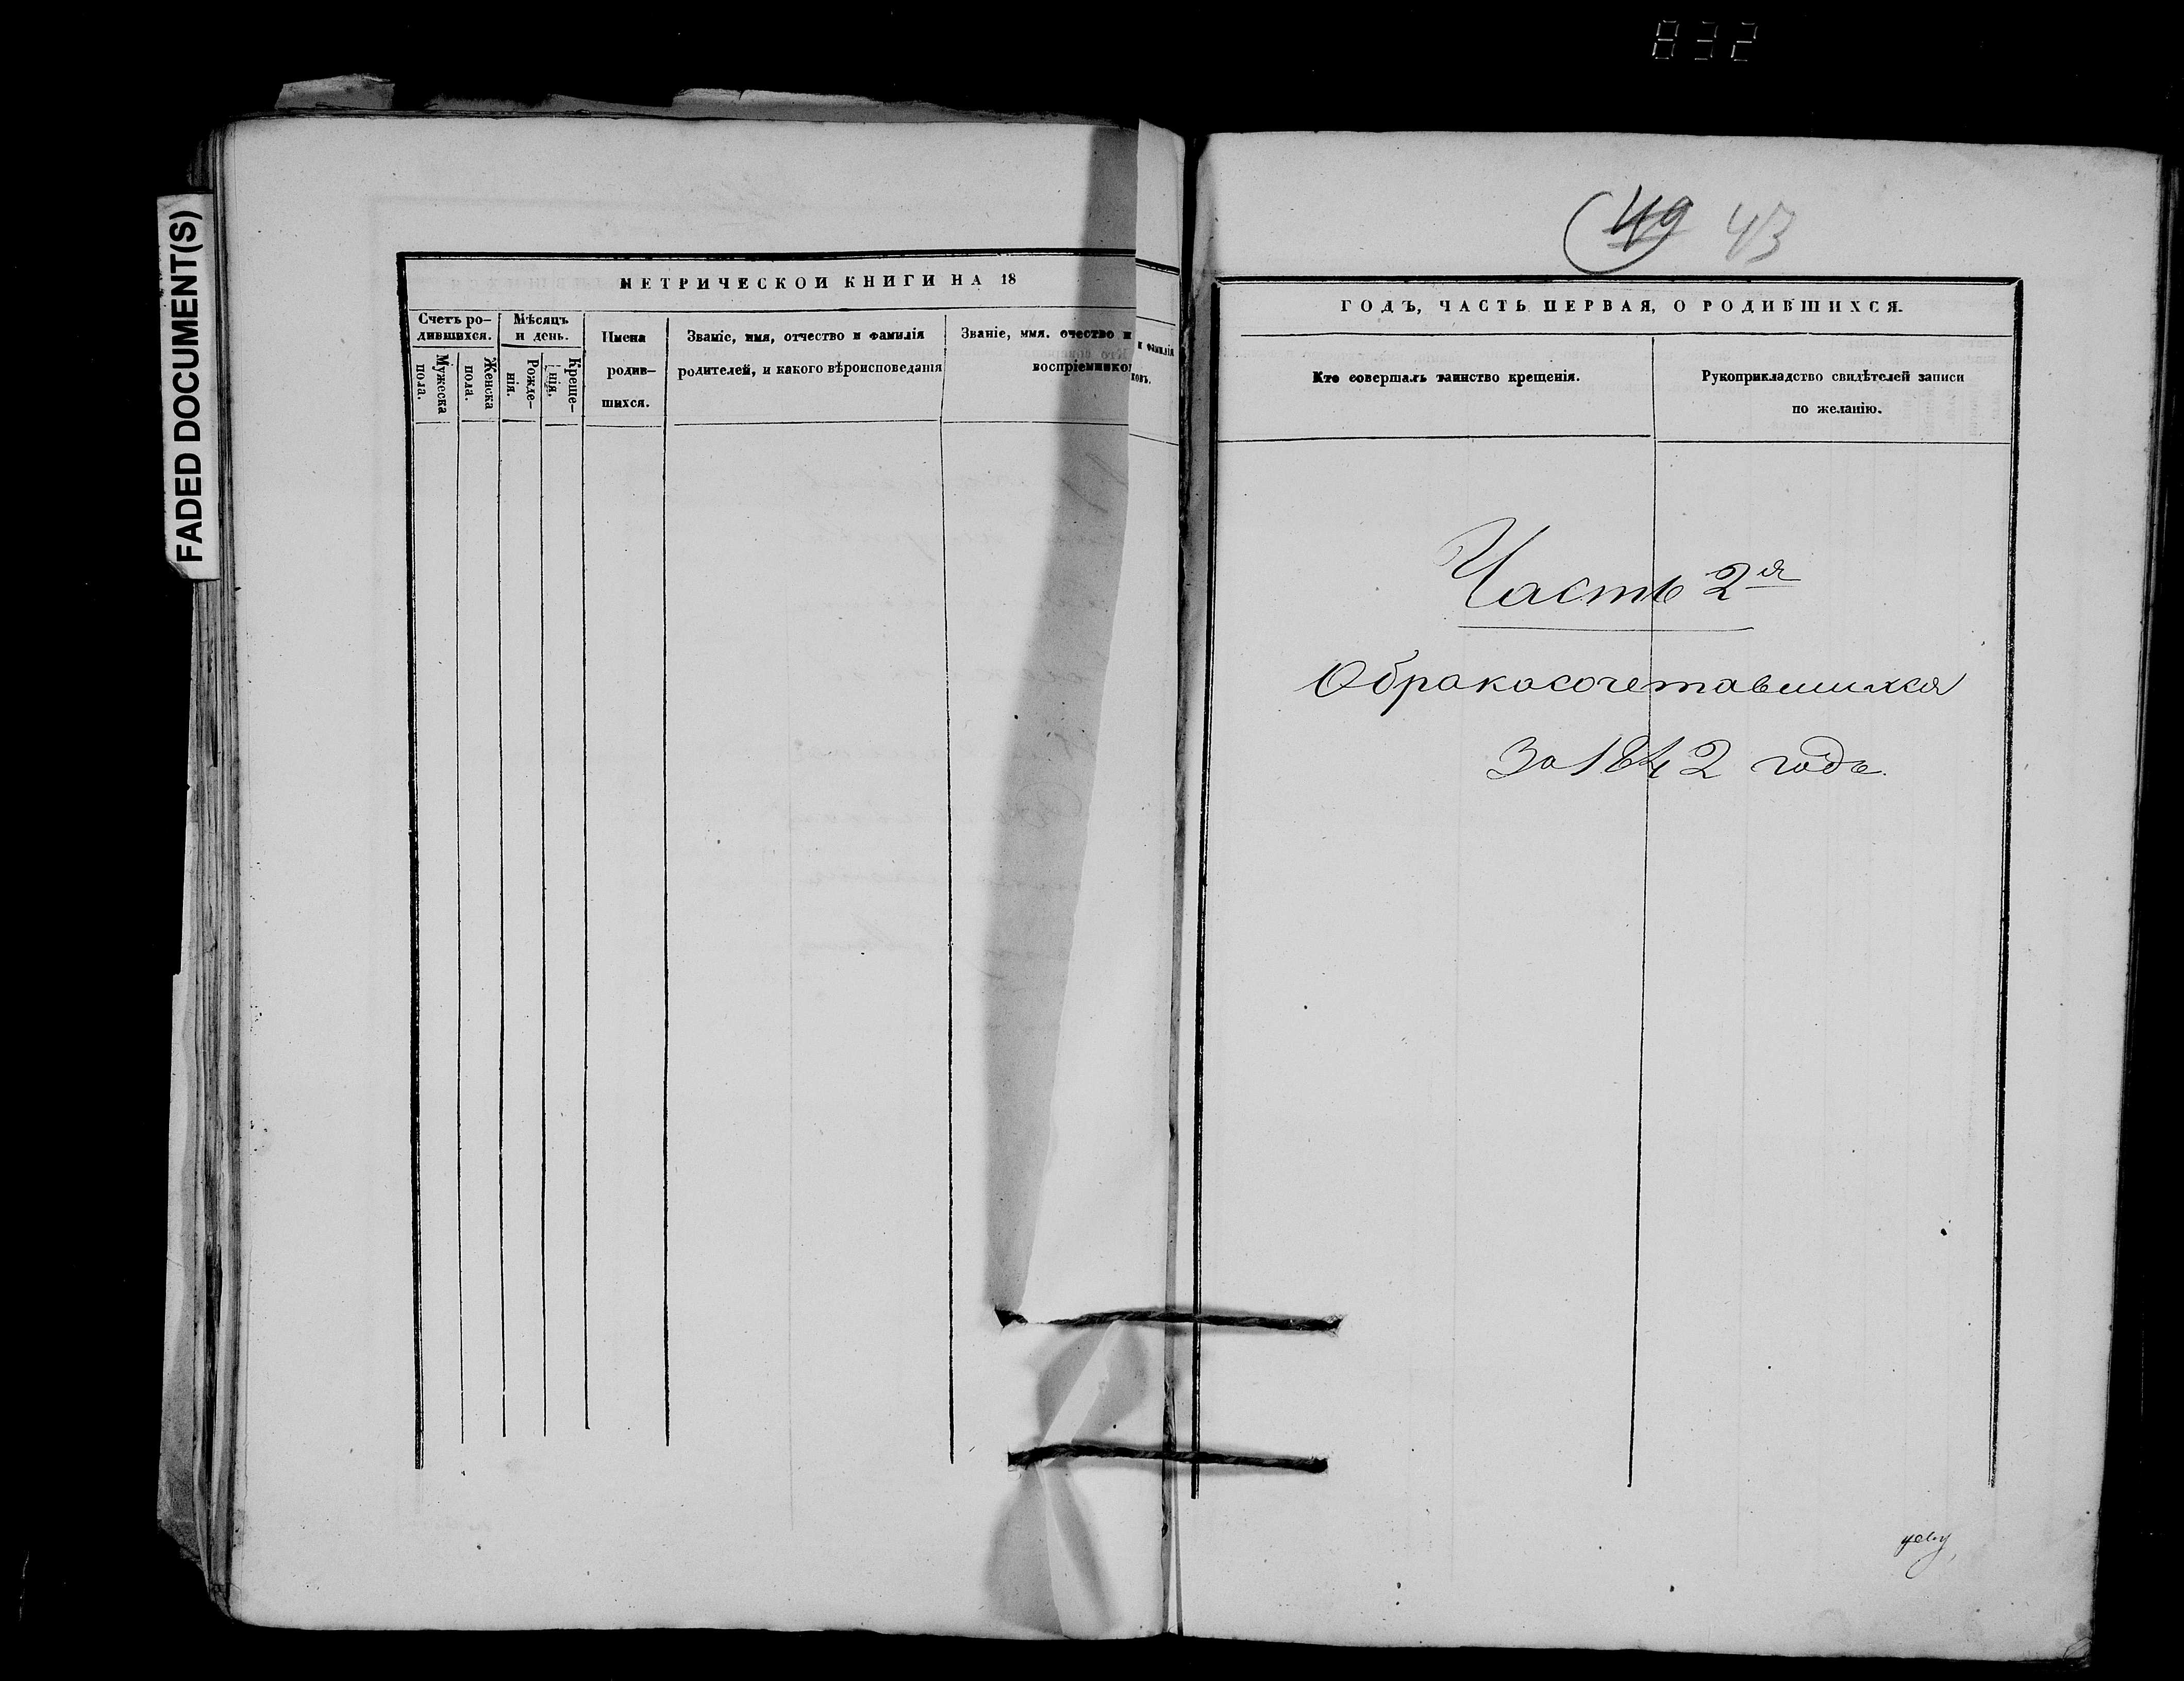 832
FADED DOCUMENT(S)
МЕТРИЧЕСКОЙ КНИГИ НА 18
Счетъ ро-
дившихся.
Мужеска
пола.
Женска
пола.
Мѣсяцъ
и день.
Рожде-
нія.
Креще-
нія.
Имена
родив-
шихся.
Званіе, имя, отчество и фамилія
родителей, и какого вѣроисповеданія
Званіе, имя. очество и
воспріемнико
и фамилія
ковъ.
49 43
ГОДЪ, ЧАСТЬ ПЕРВАЯ, О РОДИВШИХСЯ.
Кто совершалъ таинство крещенія.
Рукоприкладство свидѣтелей записи
по желанію.
Часть 2я
Обракосочетавшихся
За 1842 годъ.